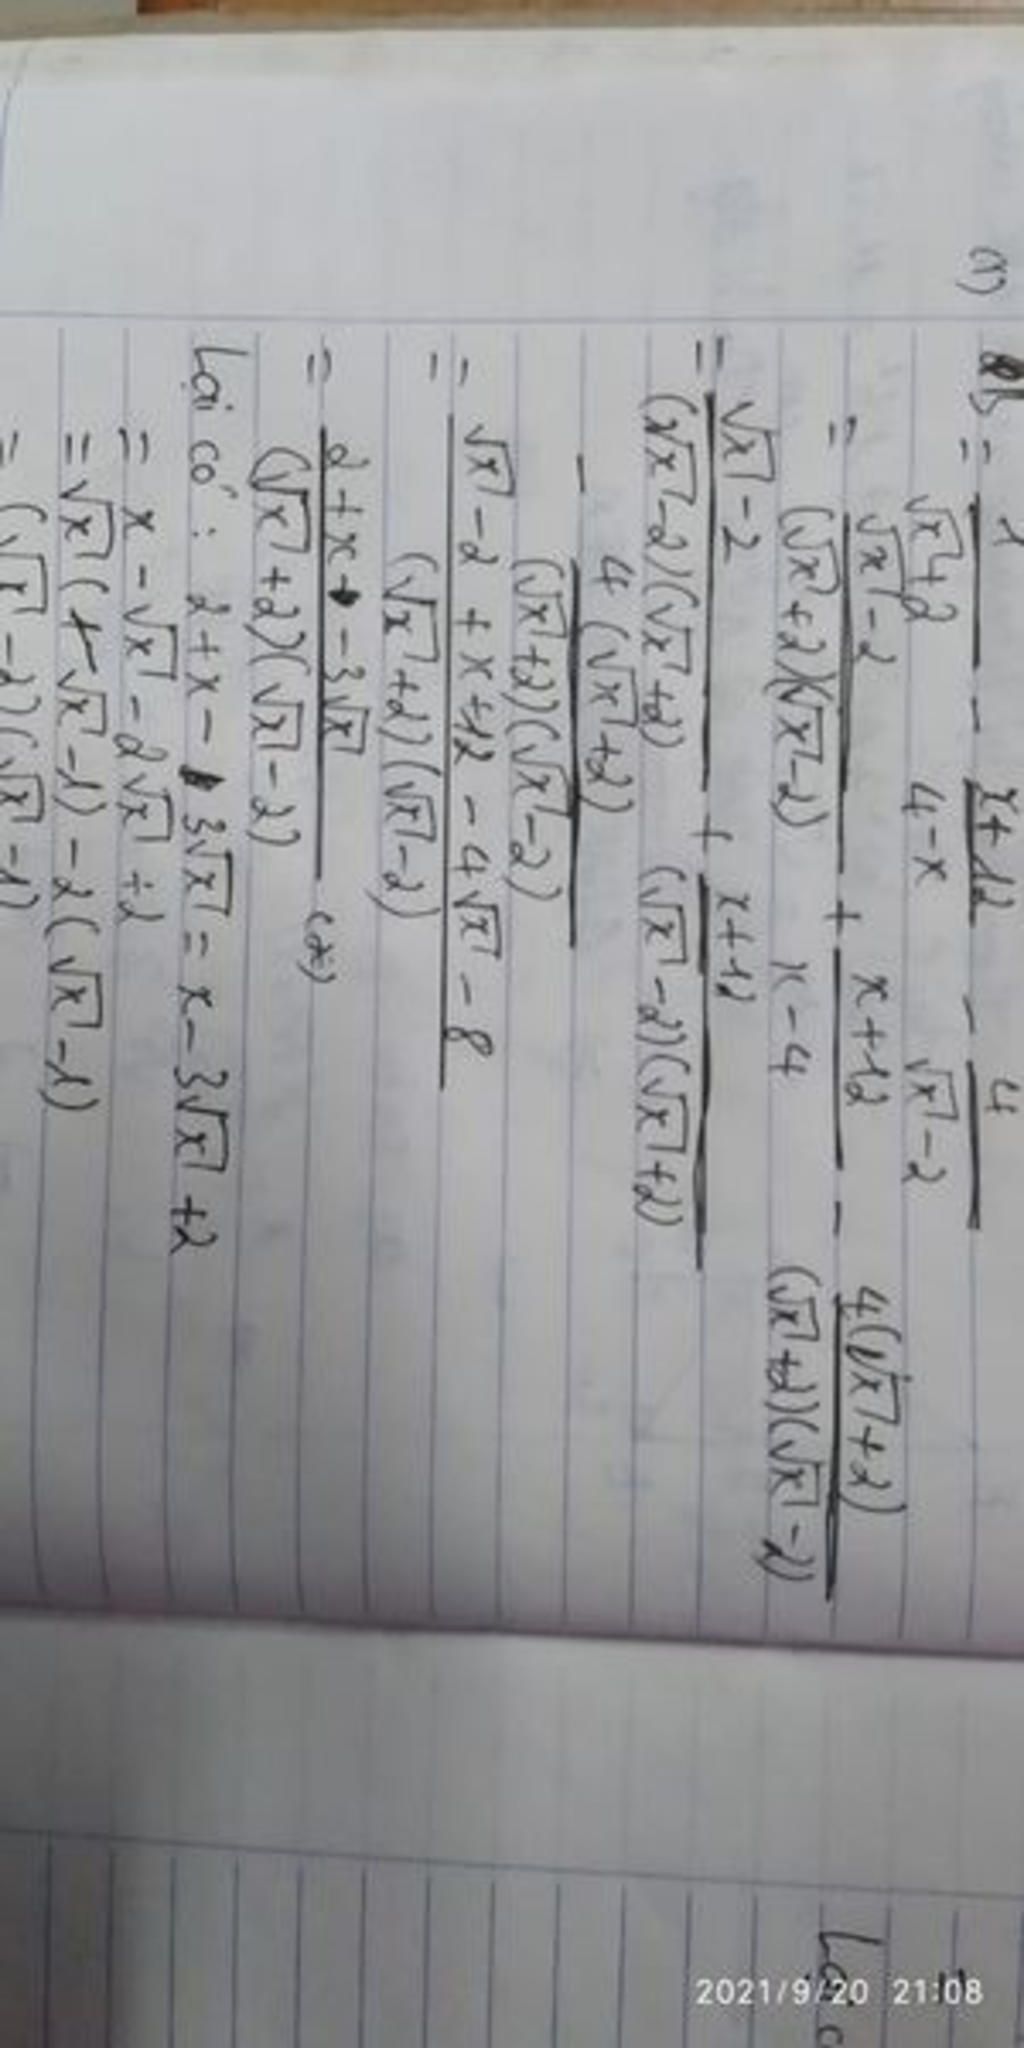 (1) B = 1/(√x + 2) - (x+12)/(4-x) - 4/(√x - 2)
= (√x - 2)/((√x + 2)(√x - 2)) + (x+12)/(x-4) - (4(√x + 2))/((√x + 2)(√x - 2))
= (√x - 2)/((√x - 2)(√x + 2)) + (x+12)/((√x - 2)(√x + 2))
- (4(√x + 2))/((√x + 2)(√x - 2))
= (√x - 2 + x + 12 - 4√x - 8)/((√x + 2)(√x - 2))
= (2 + x - 3√x)/((√x + 2)(√x - 2)) (*)
Lại có: 2 + x - 3√x = x - 3√x + 2
= x - √x - 2√x + 2
= √x(√x - 1) - 2(√x - 1)
= (√x - 2)(√x - 1)
=
Lại c
2021/9/20 21:08